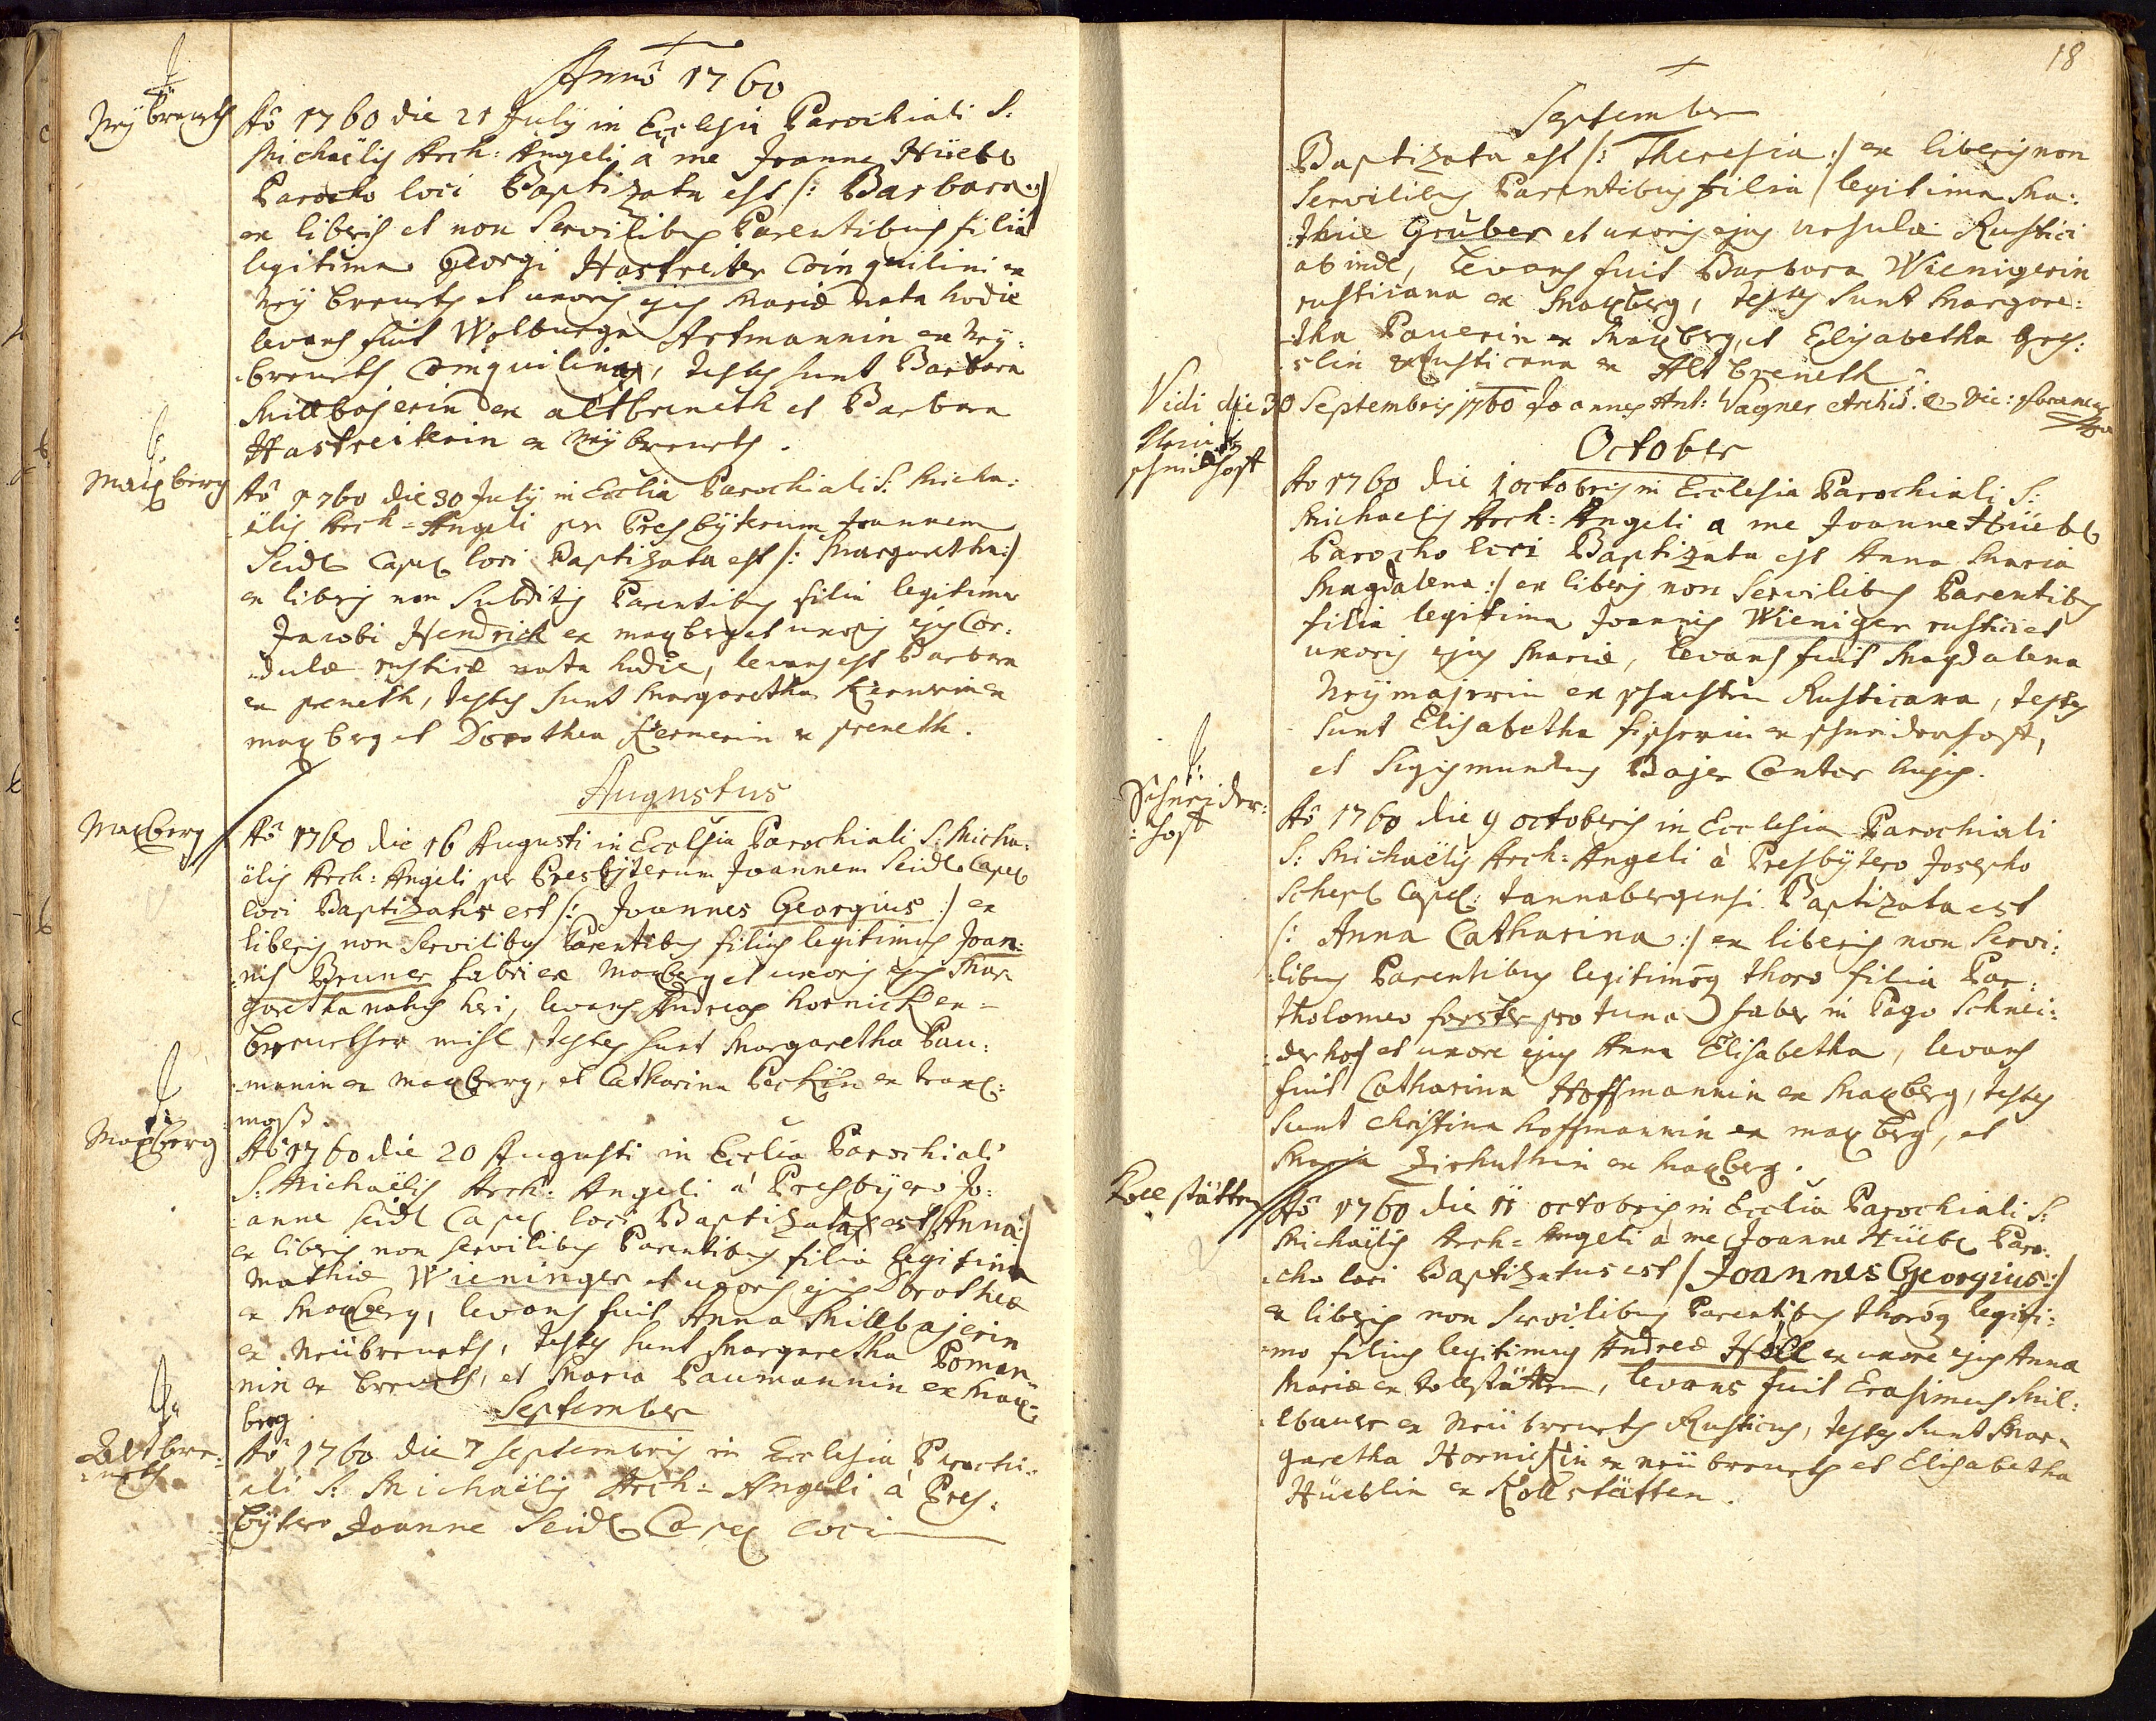 Anno 1760
Neÿbreneth
Aō 1760 die 21 July in Ecclesia Parochiali S:
Michaëlis Arch: Angeli à me Joanne Hüebl
Parocho loci Baptizata est /: Barbara :/
ex liberis et non Servilibus Parentibus filia
legitima Georgi Hastreiter Coinquilini ex
Neÿ breneth et uxoris ejus Mariæ nata hodie
levans fuit Wolburga Artmannin ex Neÿ:
:breneth Coinquilina, testes sunt Barbara
Millbajerin ex altbreneth et Barbara
Hastreiterin ex Neÿ breneth.
Maxberg
Aō 1760 die 30 July in Ecclia Parochiali S: Micha:
:ëlis Arch: Angeli per Presbÿterum Joannem
Seidl Capel loci Baptizata est /: Margaretha :/
ex liberis non Subditis Parentibus filia legitima
Jacobi Hendrick ex maxberg et uxoris ejus Cor:
:dulæ rusticæ nata hodie, levans est Barbara
ex preneth, testes sunt Margaretha Kernerin ex
maxberg et Dorothea Kernerin ex preneth.
Augustus
Maxberg
Aō 1760 die 16 Augusti in Ecclesia Parochiali S: Micha:
ëlis Arch: Angeli per Presbÿterum Joannem Seidl Capel
loci Baptizatus est /: Joannes Georgius :/ ex
liberis non Servilibus Parentibus filius legitimus Joan:
:nis Bruner fabri ex Maxberg et uxoris ejus Mar
garetha natus heri, levans Andreas hornick ex
brenether mihl, testes sunt Margaretha Pau:
:manin ex maxberg, et Catharina Peckin ex
moß.
Maxberg
Aō 1760 die 20 Augusti in Ecclia Parochiali
S: Michaëlis Arch: Angeli à Presbÿero Jo:
:anne Seidl Capel loci Baptizata est /Anna:/
ex liberis non Servilibus Parentibus filia legitima
Mathiæ Wieninger et uxoris ejus Dorotheæ
ex Maxberg, levans fuit Anna Millbajerin
ex Neübreneth, testes sunt Margaretha Poman
nin ex breneth, et Maria Paumannin ex Max:
berg
September
Altbre:
:neth
Aō 1760 die 7 Septembris in Ecclesia Parochi:
:ali S: Michaëlis Arch: Angeli à Pres:
bÿtero Joanne Seidl Capel loci
18
September
Baptizata est /: Theresia :/ ex liberis non
Servilibus Parentibus filia legitima Ma:
:thiæ Gruber et uxoris ejus ursulæ Rustici
ab inde, Levans fuit Barbara Wienigerin
rusticana ex Maxberg, testes sunt Margare:
:tha Pauerin ex Maxberg, et Elisabetha
rusticana ex Alt breneth.
Vidi die 30 Septembris 1760 Joannes Ant: Wagner Archid:
October
Schneiderhoff
Ao 1760 die 1 octobris in Ecclesia Parochiali S:
Michaelis Arch: Angeli a me Joanne Hüebl
Parocho loci Baptizata est Anna Maria
Magdalena :/ ex liberis non Servilibus Parentibus
filia legitima Joannis Wieniger rustici et
uxoris ejus Mariæ, Levans fuit Magdalena
Neÿmajerin ex Rusticana, testes
sunt Elisabetha fischerin ex schneiderhoff,
et Sigismundus Bajer Cantor hujus.
Schneider:
:hoff
Aō 1760 die 9 octobris in Ecclesia Parochiali
S: Michaëlis Arch: Angeli à Presbÿtero Josepho
Capel: tannabergensi Baptizata est
/: Anna Catharina :/ ex liberis non Servi:
:libus Parentibus legitimoq thoro filia Bar:
tholomeo forster pro tunc faber in Pago Schnei:
:derhof et uxore ejus Anna Elisabetha, levans
fuit Catharina Hoffmannin ex Maxberg, testes
sunt Christina hoffmannin ex maxberg, et
Maria ex Maxberg.
Kollstätten
Aō 1760 die 11 octobris in Ecclia Parochiali S:
Michaëlis Arch: Angeli à me Joanne Hüebl Paro:
:cho loci Baptizatus est / Joannes Georgius :/
ex liberis non Servilibus Parentibus thoroq legiti:
:mo filius legitimus Andreæ Holl ex uxore ejus Anna
Mariæ ex Kollstätten, levans fuit Erasimus Mil:
:lbauer ex Neü breneth Rusticus, testes sunt Mar:
garetha Hornickin ex neü breneth et Elisabetha
Hüeblin ex Kollstätten.